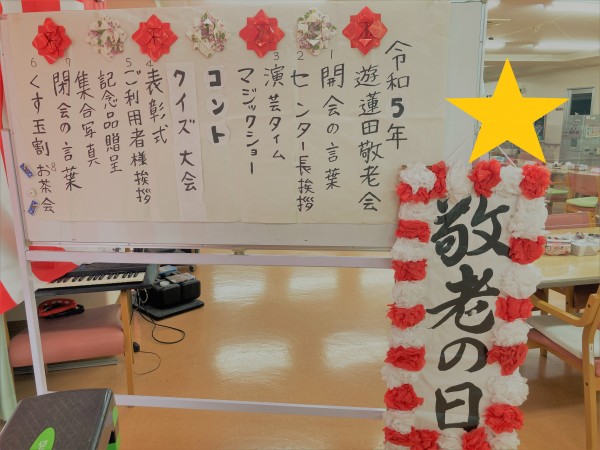 令和5年
遊蓮田敬老会
1 開会の言葉
2 センター長挨拶
3 演芸タイム
マジックショー
コント
クイズ大会
4 表彰式
5 ご利用者様挨拶
記念品贈呈
集合写真
7 閉会の言葉
6 くす玉割
8 お茶会
敬老の日